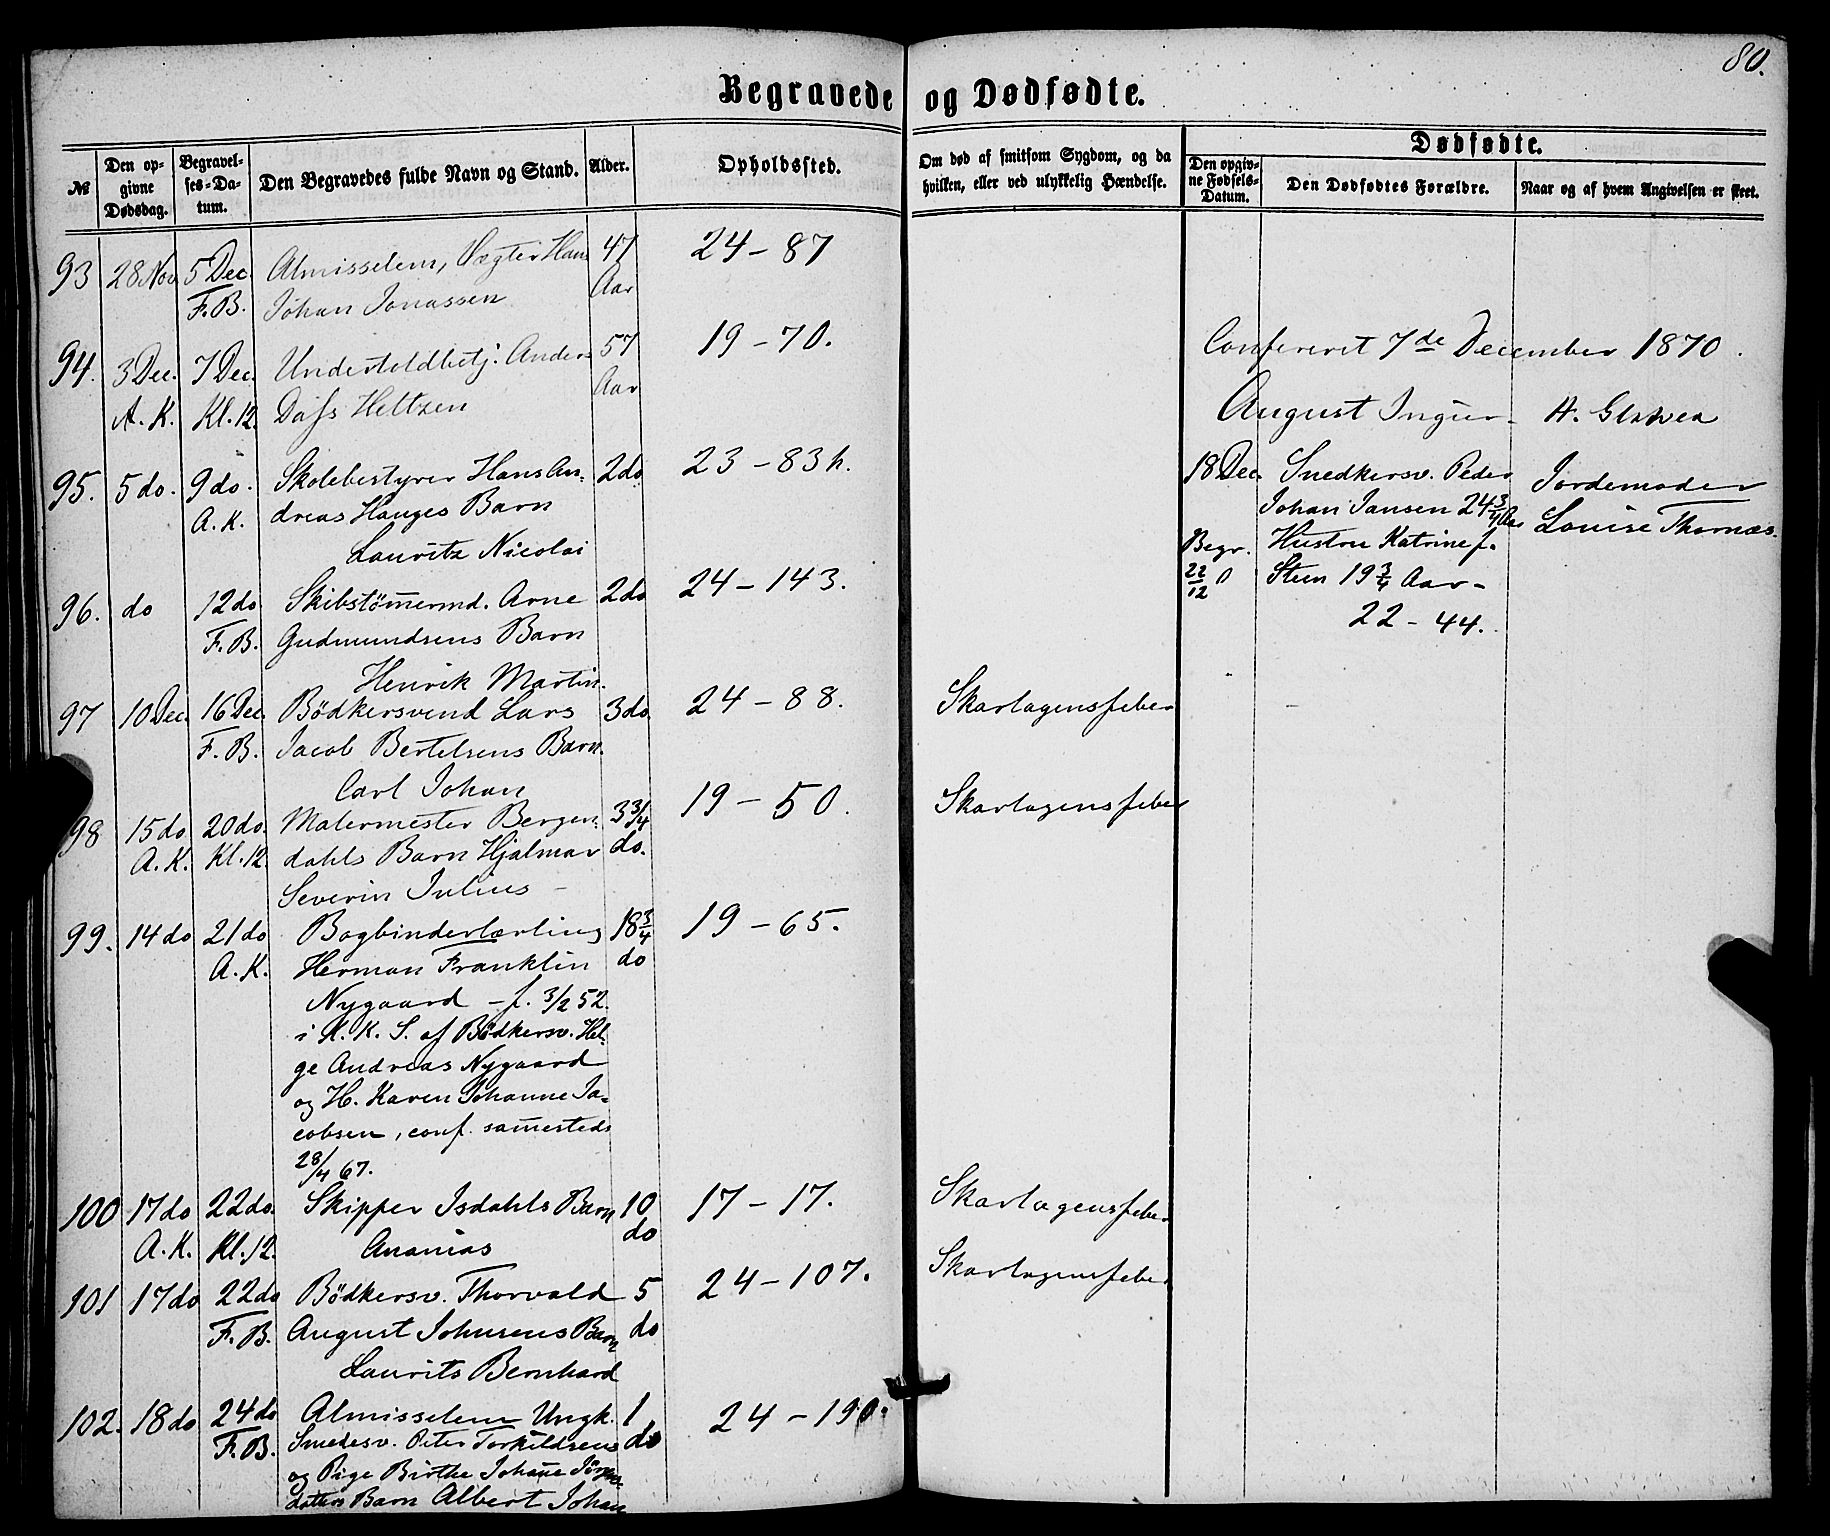 80.
Begravede og Dødfødte.
№
Den opgivne Dødsdag.
Begravelses-Datum.
Den Begravedes fulde Navn og Stand.
Alder.
Opholdssted.
Om død af smitsom Sygdom, og da hvilken, eller ved ulykkelig Hændelse.
Dødfødte.
Den opgivne Fødsels-Datum.
Den Dødfødtes Forældre.
Naar og af hvem Angivelsen er skeet.
93 28 Nov 5 Dec Almisselem, Vægter Hans 47 24 - 87
F.B. Johan Jonassen Aar
94. 3 Dec. 7 Dec. Undertoldbetj. Anders 57 19 - 70.
A.K. Kl. 12. Dass Heltzen Aar
95. 5 do. 9 do. Skolebestyrer Hans An- 2 do 23 - 83 h.
A.K. dreas Hauges Barn
Lauritz Nicolai
96. do 12 do Skibstømermd. Arne 2 do 24 - 143.
F.B. Gudmundsens Barn
Henrik Martin.
97 10 Dec. 16 Dec. Bödkersvend Lars 3 do. 24 - 88. Skarlagensfeber
F.B. Jacob Bertelsens Barn.
Carl Johan
98 15 do 20 do. Malermester Bergen- 3 3/4 19 - 50. Skarlagensfeber
A.K. Kl. 12 dahls Barn Hjalmar do.
Severin Julius -
99. 14 do 21 do Bogbinderlærling 18 3/4 19 - 65.
A.K. Herman Franklin do
Nygaard - f. 3/2 52.
i K. K. S. af Bödkersv. Hel-
ge Andreas Nygaard
og H. Karen Johanne Ja-
cobsen, conf. samesteds
28/4 67.
100 17 do 22 do. Skipper Isdahls Barn 10 17 - 17. Skarlagensfeber
A.K. Kl. 12. Ananias do
101 17 do 22 do Bödkersv. Thorvald 5 24 - 107. Skarlagensfeber
F.B. August Johnsens Barn do
Laurits Bernhard
102. 18 do 24 do Almisselem Ungk. 1 24 - 190.
F.B. Smedesv. Peter Torkildsens do
og Pige Birthe Johane Jörgens-
datters Barn Albert Johan
Confereret 7de December 1870.
August Ingier. H.
18 Dec. Snedkersv. Peder Jordemoder
Johan Jansen 24 3/4 Aar Louise Thornæs.
Begr. Hustru Katrine f.
22/12 Steen 19 3/4 Aar -
22 - 44.